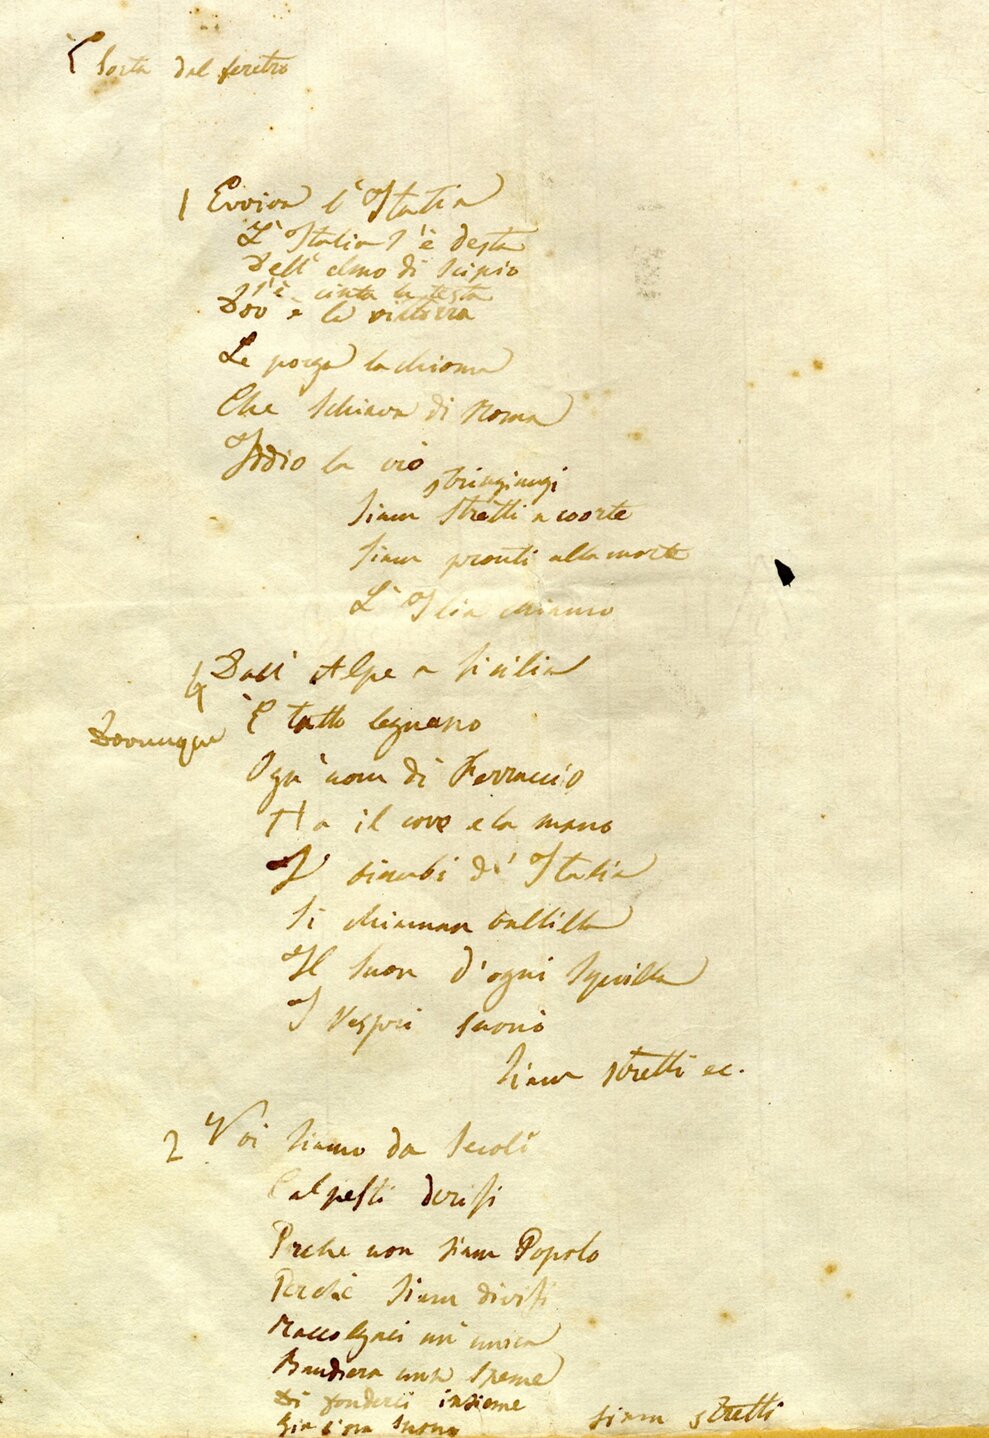 È sorta dal feretro
1 Evviva l'Italia
L'Italia s'è desta
Dell'elmo di Scipio
s'è cinta la testa
Dov'è la vittoria
Le porga la chioma
Che schiava di Roma
Iddio la creò
stringiamgi
siam stretti a coorte
siam pronti alla morte
L'Itlia chiamò
4 Dall'Alpe a Sicilia
Dovunque
È tutto Legnano
Ogn'uom di Ferruccio
Ha il core e la mano
I bimbi d'Italia
Si chiaman balilla
Il suon d'ogni squilla
I Vespri suonò
siam stretti ec.
2 Noi siamo da secoli
Calpesti derisi
Perche non siam Popolo
Perchè siam divisi
Raccolgaci un'unica
Bandiera una speme
Di fonderci insieme
Gia l'ora suonò
siam stretti